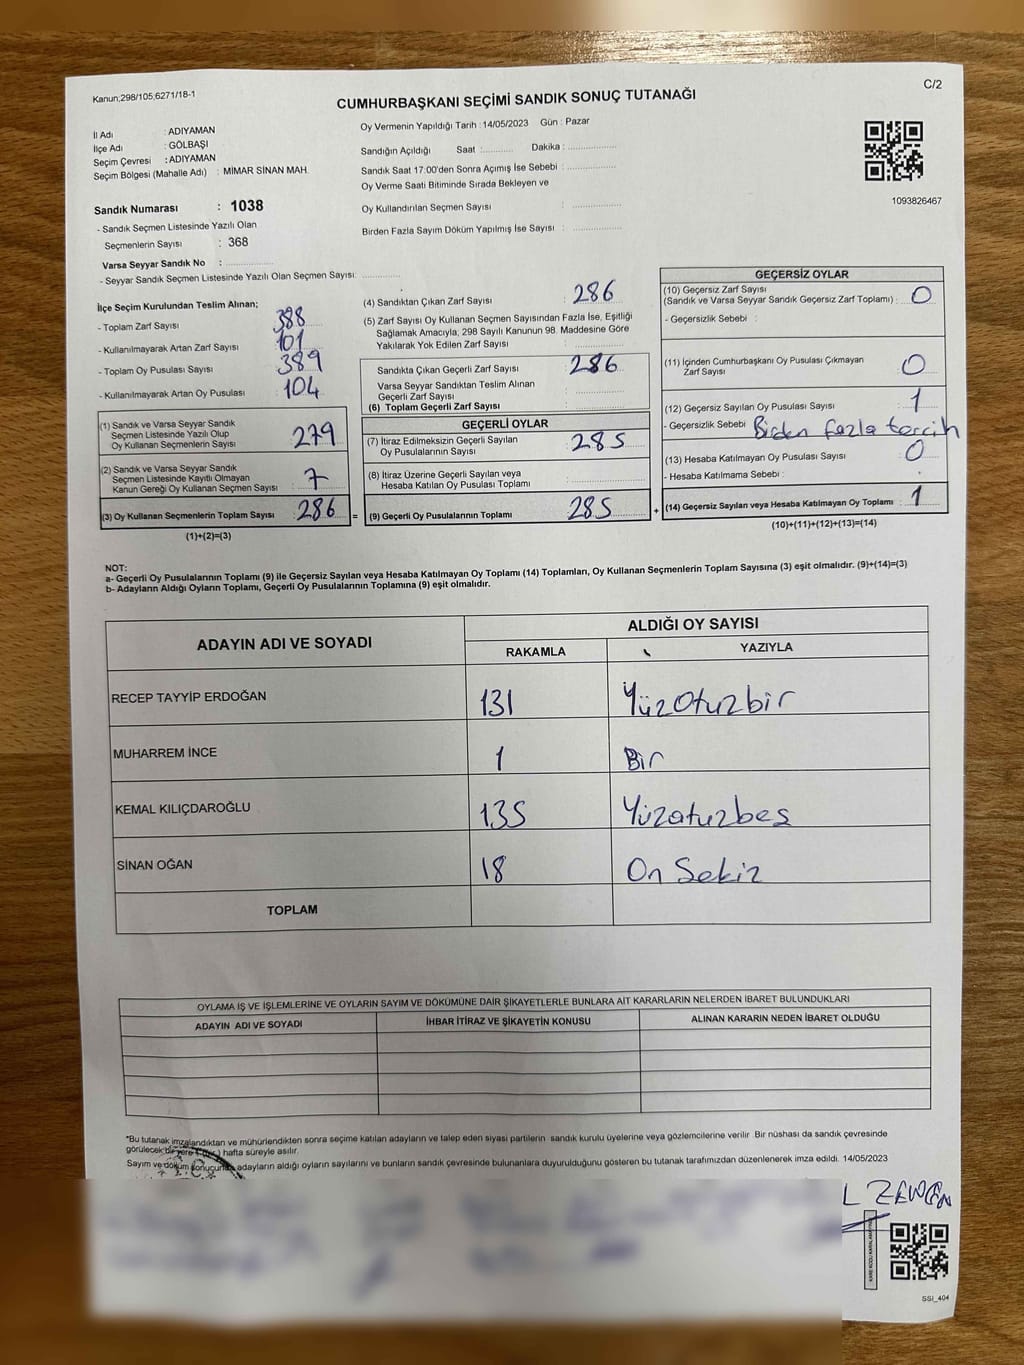 Kanun;298/105,6271/18-1
C/2
CUMHURBAŞKANI SEÇİMİ SANDIK SONUÇ TUTANAĞI
İl Adı : ADIYAMAN
İlçe Adı : GÖLBAŞI
Seçim Çevresi : ADIYAMAN
Seçim Bölgesi (Mahalle Adı) : MİMAR SİNAN MAH.
Sandık Numarası : 1038
- Sandık Seçmen Listesinde Yazılı Olan
Seçmenlerin Sayısı : 368
Varsa Seyyar Sandık No : ..................
- Seyyar Sandık Seçmen Listesinde Yazılı Olan Seçmen Sayısı: ..............
Oy Vermenin Yapıldığı Tarih : 14/05/2023 Gün : Pazar
Sandığın Açıldığı Saat :............ Dakika :..................
Sandık Saat 17:00'den Sonra Açımış İse Sebebi :..................
Oy Verme Saati Bitiminde Sırada Bekleyen ve
Oy Kullandırılan Seçmen Sayısı : ..................
Birden Fazla Sayım Döküm Yapılmış İse Sayısı : ..................
1093826467
İlçe Seçim Kurulundan Teslim Alınan;
- Toplam Zarf Sayısı : 388
- Kullanılmayarak Artan Zarf Sayısı : 101
- Toplam Oy Pusulası Sayısı : 389
- Kullanılmayarak Artan Oy Pusulası : 104
(1) Sandık ve Varsa Seyyar Sandık
Seçmen Listesinde Yazılı Olup
Oy Kullanan Seçmenlerin Sayısı : 279
(2) Sandık ve Varsa Seyyar Sandık
Seçmen Listesinde Kayıtlı Olmayan
Kanun Gereği Oy Kullanan Seçmen Sayısı : 7
(3) Oy Kullanan Seçmenlerin Toplam Sayısı : 286 =
(1)+(2)=(3)
(4) Sandıktan Çıkan Zarf Sayısı : 286
(5) Zarf Sayısı Oy Kullanan Seçmen Sayısından Fazla İse, Eşitliği
Sağlamak Amacıyla; 298 Sayılı Kanunun 98. Maddesine Göre
Yakılarak Yok Edilen Zarf Sayısı : ..................
Sandıkta Çıkan Geçerli Zarf Sayısı : 286
Varsa Seyyar Sandıktan Teslim Alınan
Geçerli Zarf Sayısı : ..................
(6) Toplam Geçerli Zarf Sayısı : ..................
GEÇERLİ OYLAR
(7) İtiraz Edilmeksizin Geçerli Sayılan
Oy Pusulalarının Sayısı : 285
(8) İtiraz Üzerine Geçerli Sayılan veya
Hesaba Katılan Oy Pusulası Toplamı : ..................
(9) Geçerli Oy Pusulalarının Toplamı : 285 +
GEÇERSİZ OYLAR
(10) Geçersiz Zarf Sayısı
(Sandık ve Varsa Seyyar Sandık Geçersiz Zarf Toplamı) : 0
- Geçersizlik Sebebi :
(11) İçinden Cumhurbaşkanı Oy Pusulası Çıkmayan
Zarf Sayısı : 0
(12) Geçersiz Sayılan Oy Pusulası Sayısı : 1
- Geçersizlik Sebebi : Birden fazla tercih
(13) Hesaba Katılmayan Oy Pusulası Sayısı : 0
- Hesaba Katılmama Sebebi :
(14) Geçersiz Sayılan veya Hesaba Katılmayan Oy Toplamı : 1
(10)+(11)+(12)+(13)=(14)
NOT:
a- Geçerli Oy Pusulalarının Toplamı (9) ile Geçersiz Sayılan veya Hesaba Katılmayan Oy Toplamı (14) Toplamları, Oy Kullanan Seçmenlerin Toplam Sayısına (3) eşit olmalıdır. (9)+(14)=(3)
b- Adayların Aldığı Oyların Toplamı, Geçerli Oy Pusulalarının Toplamına (9) eşit olmalıdır.
ADAYIN ADI VE SOYADI
ALDIĞI OY SAYISI
RAKAMLA YAZIYLA
RECEP TAYYİP ERDOĞAN 131 Yüzotuzbir
MUHARREM İNCE 1 Bir
KEMAL KILIÇDAROĞLU 135 Yüzotuzbeş
SİNAN OĞAN 18 On Sekiz
TOPLAM
OYLAMA İŞ VE İŞLEMLERİNE VE OYLARIN SAYIM VE DÖKÜMÜNE DAİR ŞİKAYETLERLE BUNLARA AİT KARARLARIN NELERDEN İBARET BULUNDUKLARI
ADAYIN ADI VE SOYADI İHBAR İTİRAZ VE ŞİKAYETİN KONUSU ALINAN KARARIN NEDEN İBARET OLDUĞU
*Bu tutanak imzalandıktan ve mühürlendikten sonra seçime katılan adayların ve talep eden siyasi partilerin sandık kurulu üyelerine veya gözlemcilerine verilir. Bir nüshası da sandık çevresinde
görülecek bir yere hafta süreyle asılır.
Sayım ve döküm sonucunda adayların aldığı oyların sayılarını ve bunların sandık çevresinde bulunanlara duyurulduğunu gösteren bu tutanak tarafımızdan düzenlenerek imza edildi. 14/05/2023
SSI_404